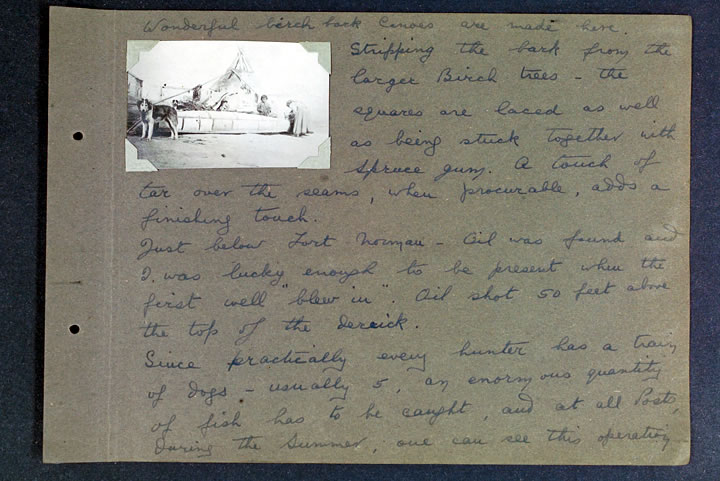 Wonderful birch back Canoes are made here.
Stripping the bark from the
larger Birch trees - the
squares are laced as well
as being stuck together with
spruce gum. A touch of
tar over the seams, when procurable, adds a
finishing touch.
Just below Fort Norman - Oil was found and
I was lucky enough to be present when the
first well "blew in". Oil shot 50 feet above
the top of the derrick.
Since practically every hunter has a train
of dogs - usually 5, an enormous quantity
of fish has to be caught, and at all Posts,
During the Summer, one can see this operation